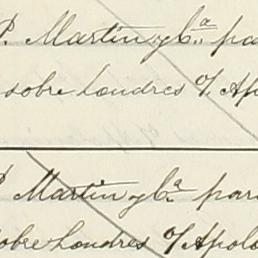 P. Martin y Cª par
sobre Londres o/ Apo
P Martin y Cª par
sobre Londres o/ Apolo